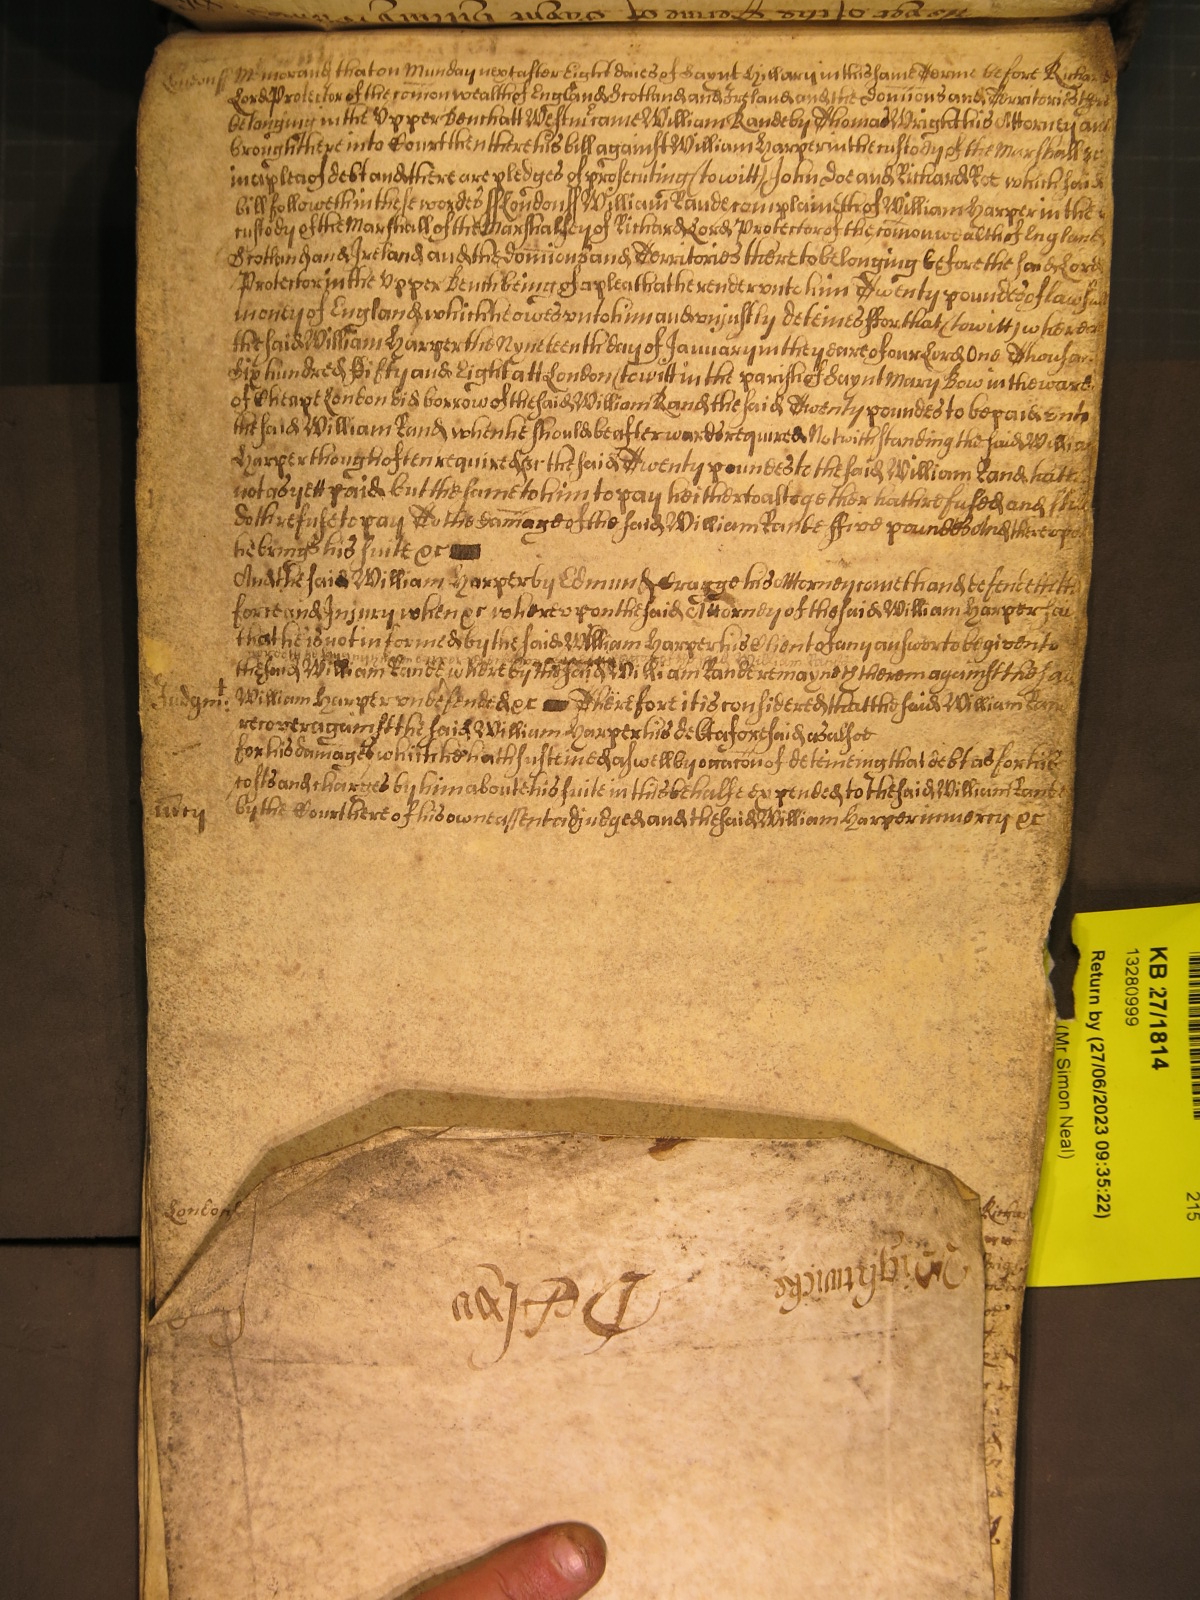 Londonss Memorand that on Munday next after Eight daies of Saynt Hillary in this same Terme before Richard
Lord Protector of the comon wealth of England Scotland and Ireland and the Dominions and Territories there
belonging in the Upper Bench att Westmr came William Rande by Thomas Wright his Attorney and
brought here into Court then there his bill against William Harper in the custody of the Marshall &c
in a plea of debt and there are pledges of prosecuting (to witt) John Doe and Richard Roe which said
bill followeth in these wordes ss Londonss William Rande complaineth of William Harper in the
custody of the Marshall of the Marshalsey of Richard Lord Protector of the comonwealth of England
Scotland and Ireland and the dominions and Territories thereto belonging before the said Lord
Protector in the Upper Bench being of a plea that he render unto him Twenty poundes of lawfull
money of England which he owes unto him and unjustly deteines ffor that (to witt) whereas
the said William Harper the Nyneteenth day of January in the yeare of our Lord One Thousand
Six hundred Fifty and Eight att London (to witt in the parish of Saynt Mary Bow in the ward
of Cheape London did borrow of the said William Rand the said Twenty poundes to be paid unto
the said William Rand when he should be afterwards required Notwithstanding the said William
Harper though often required &c the said Twenty poundes to the said William Rand hath
not as yett paid but the same to him to pay heitherto altogether hath refused and still
doth refuse to pay To the damage of the said William Rande ffive poundes And thereupon
he brings his suite &c
And the said William Harper by Edmund his Attorney cometh and defendeth the
force and Injury when &c whereupon the said Attorney of the said William Harper said
that he is not informed by the said William Harper his Client of any answer to be given to
the said William Rande whereby the said William Rande remayneth therein against the said
Judgmt William Harper undefended &c Therefore it is considered that the said William Rand
recover against the said William Harper his debt aforesaid as alsoe
for his damages which he hath susteined aswell by occacon of deteineing that debt as for his
costs and charges by him about his suite in this behalfe expended to the said William Rande
mercy by the Court here of his owne assent adjudged and the said William Harper in mercy &c
London
Wightwicke
KB 27/1814
13280999
Return by (27/06/2023 09:35:22)
(Mr Simon Neal)
215